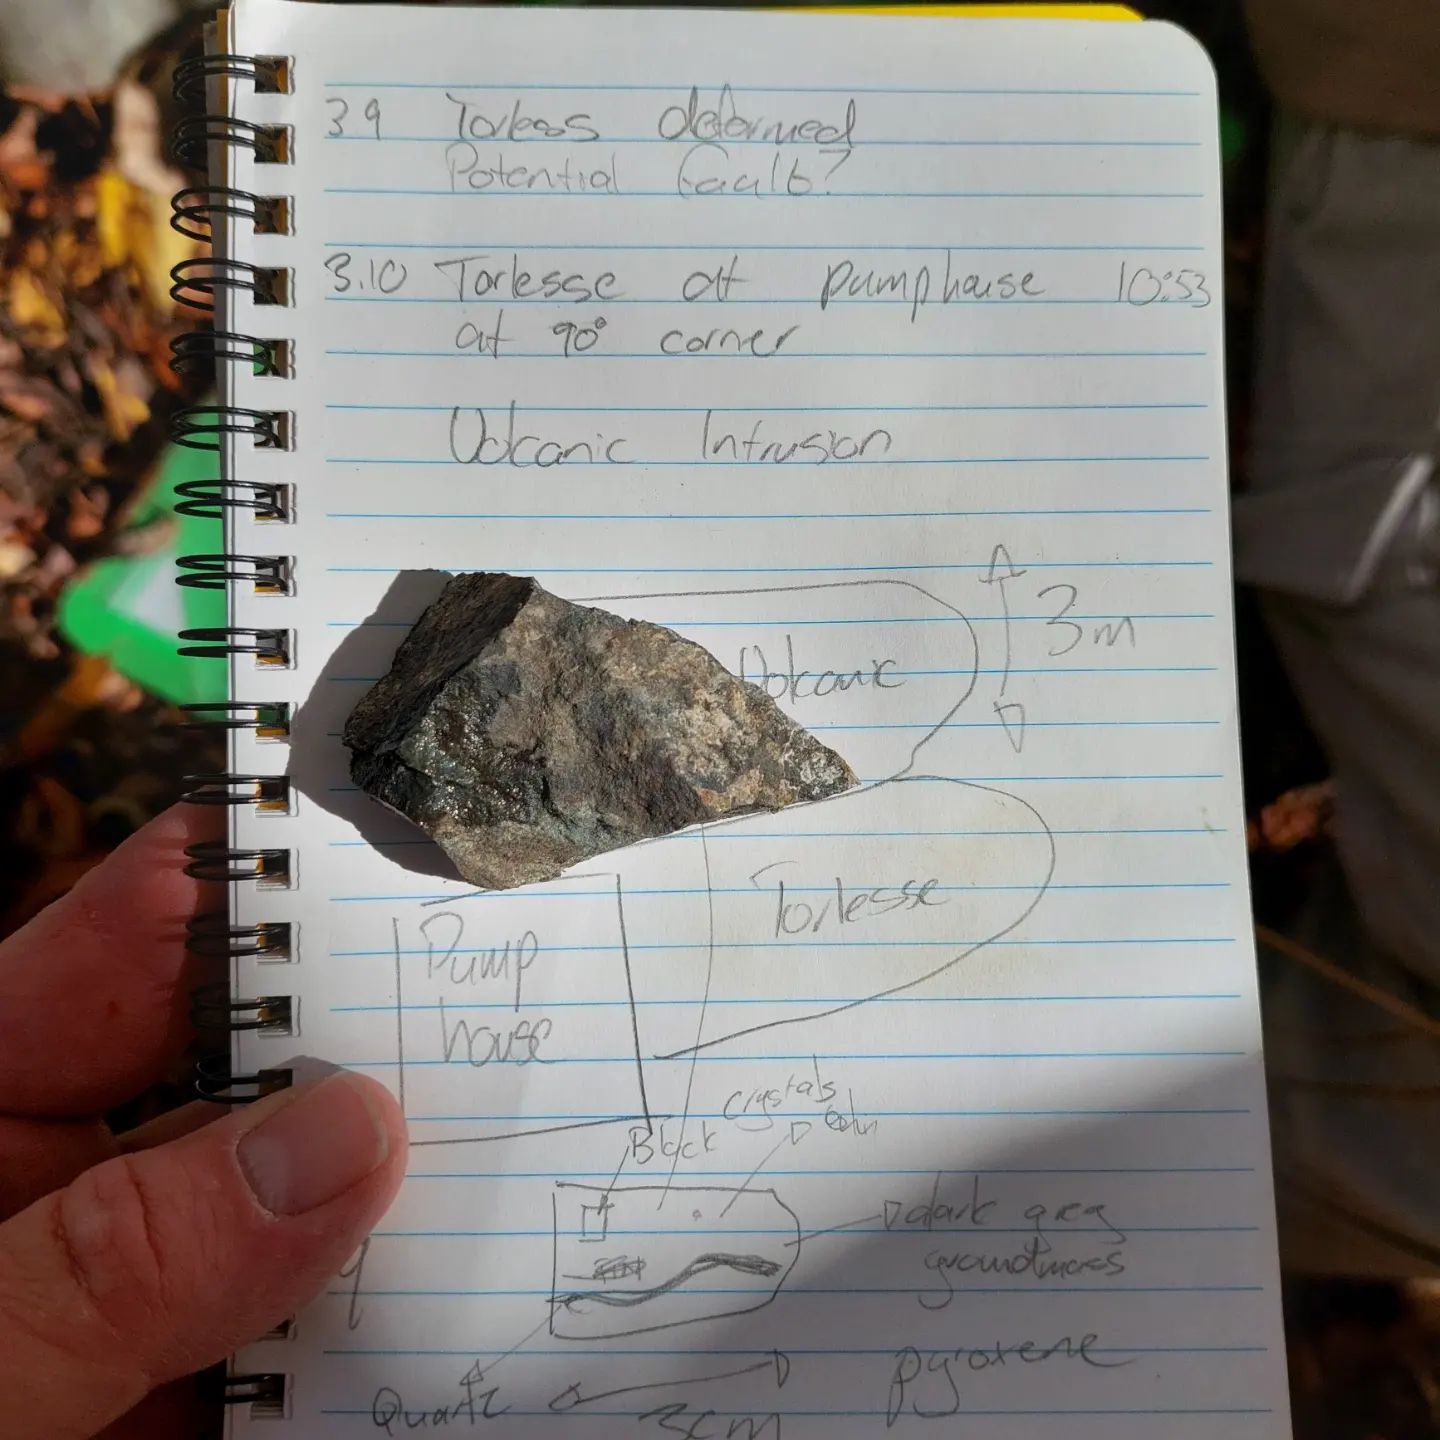 39 Torless deformed
Potential fault?
3.10 Torlesse at pumphouse 10:53
at 90° corner
Volcanic Intrusion
3m
Volcanic
Torlesse
Pump
house
crystals
Black
dark grey
groundmass
pyroxene
Quartz
3cm